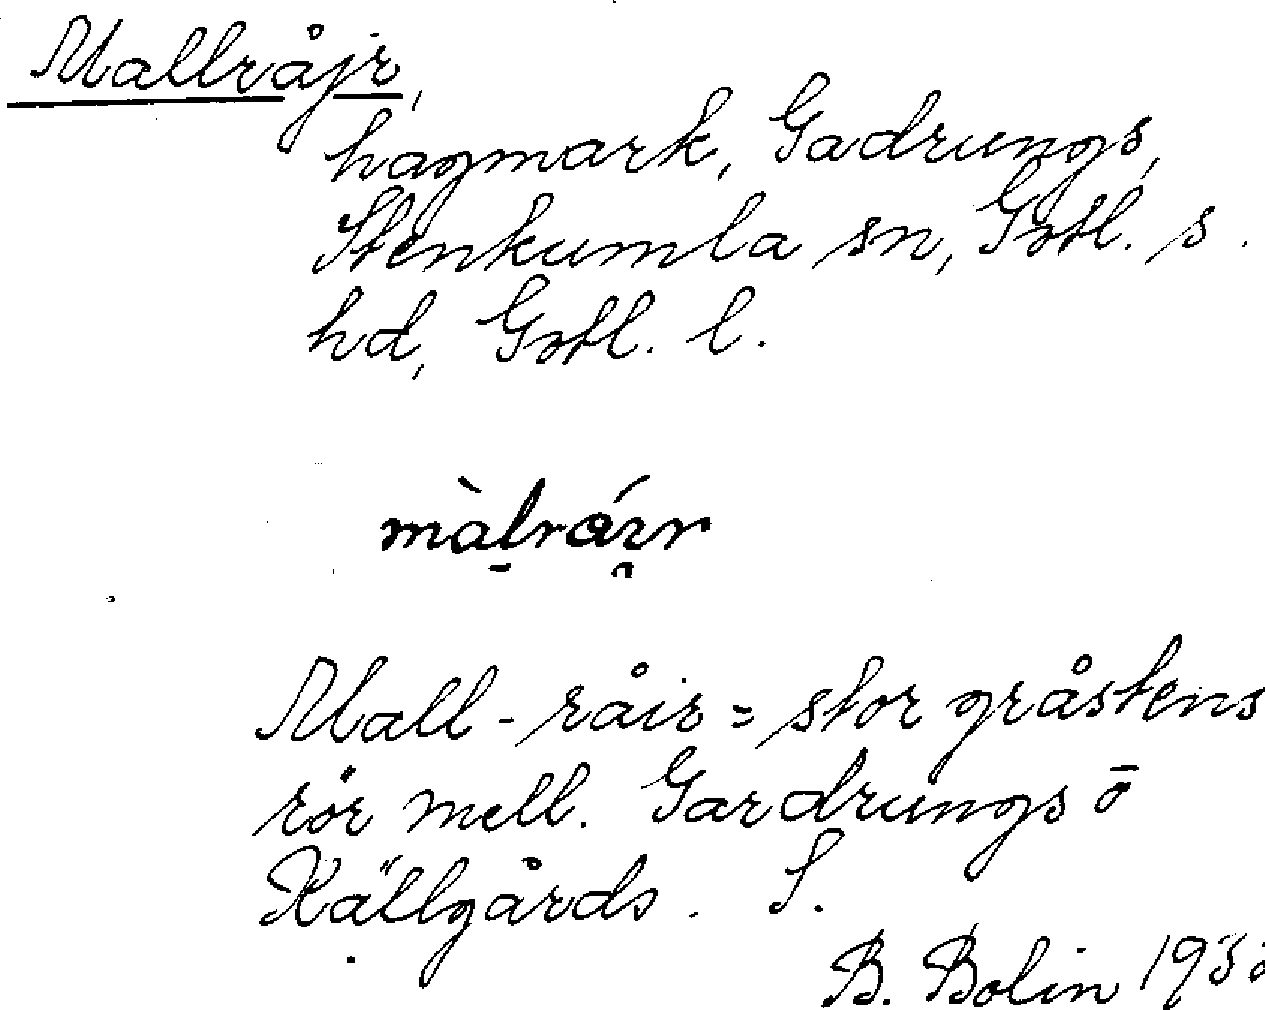 Mallråjr,
hagmark, Gadrungs,
Stenkumla sn, Gotl. s.
hd, Gotl. l.
màl̠ráɪ̯r
Mall-råir = stor gråstens
rör mell. Gardrungs ō
Källgårds. S.
B. Bolin